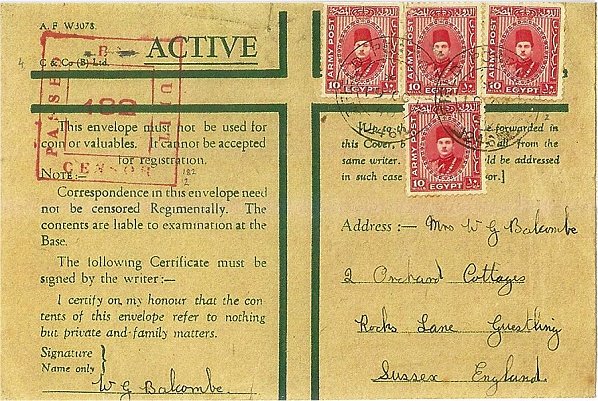 A. F. W3078.
C & Co (B) Ltd.
ACTIVE
4
PASSED
B
UNIT
182
CENSOR
This envelope must not be used for
coin or valuables. It cannot be accepted
for registration.
NOTE:—
182
2
Correspondence in this envelope need
not be censored Regimentally. The
contents are liable to examination at the
Base.
The following Certificate must be
signed by the writer:—
I certify on my honour that the con-
tents of this envelope refer to nothing
but private and family matters.
Signature
Name only}
W G Balcombe.
ARMY POST
10
EGYPT
ARMY POST
10
EGYPT
ARMY POST
10
EGYPT
ARMY POST
10
EGYPT
forwarded in
this Cover, all from the
same writer. be addressed
in such case
Address:— Mrs W G Balcombe
2 Orchard Cottages
Rocks Lane Guestling
Sussex England.